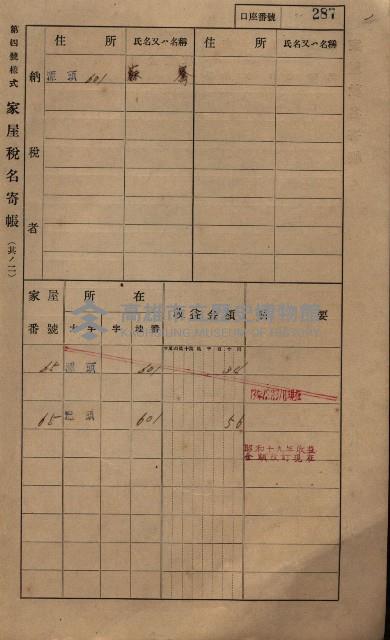 口座番號 287
第四號樣式 家屋稅名寄帳（其ノ二）
納稅者
住所 氏名又ハ名稱 住所 氏名又ハ名稱
源頭 601 蘇
家屋番號 所在 收益金額 摘要
大字 字 地番
65 源頭 601 54
65 源頭 601 56
昭和十九年收益
金額改訂現在
高雄市立歷史博物館
KAOHSIUNG MUSEUM OF HISTORY